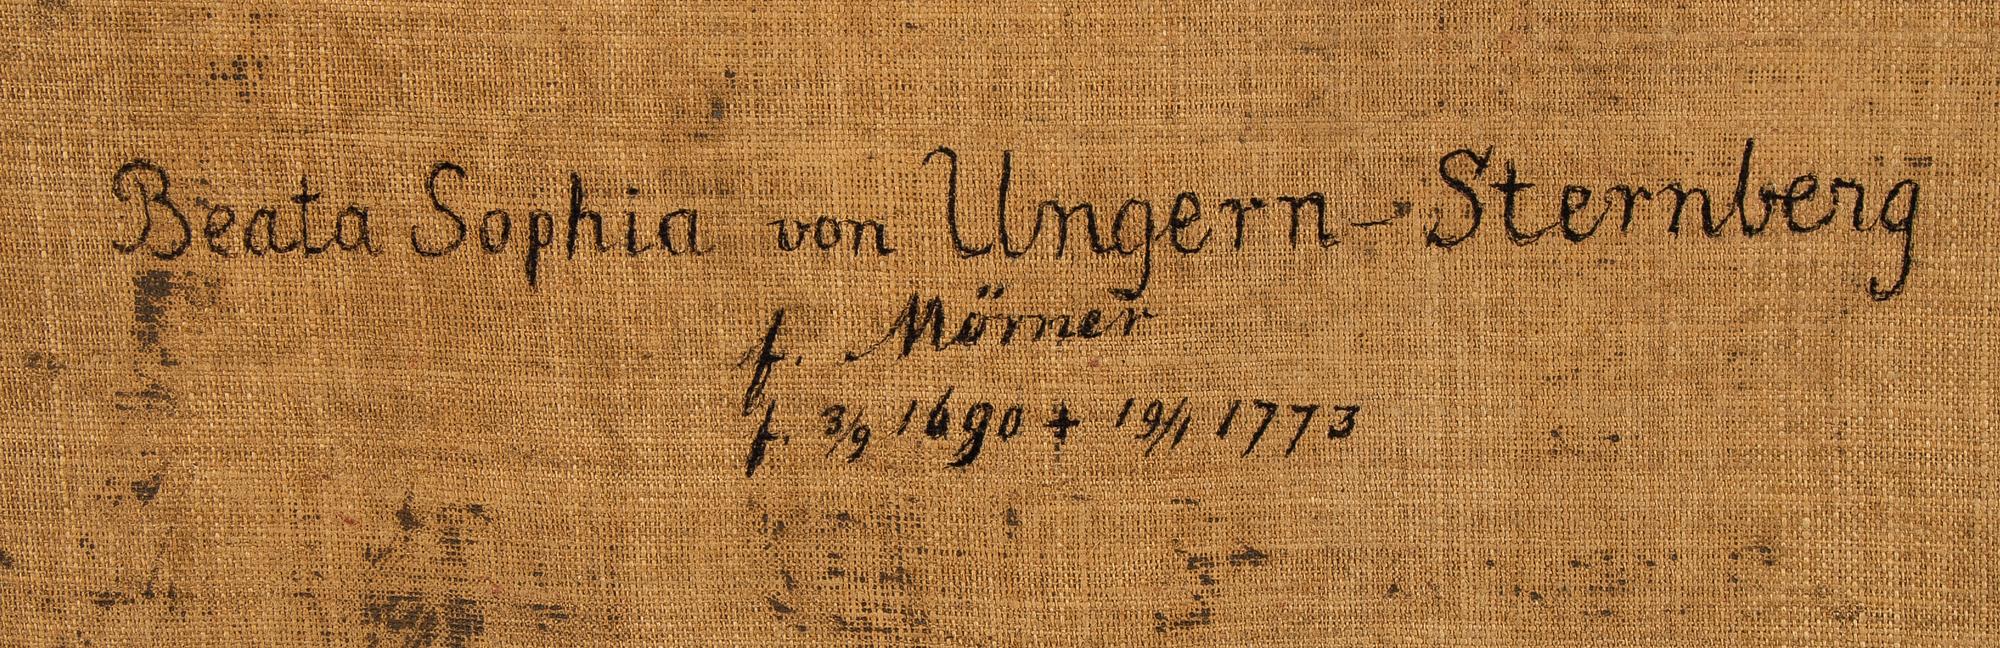 Beata Sophia von Ungern-Sternberg
f. Mörner
f. 3/9 1690 + 19/1 1773